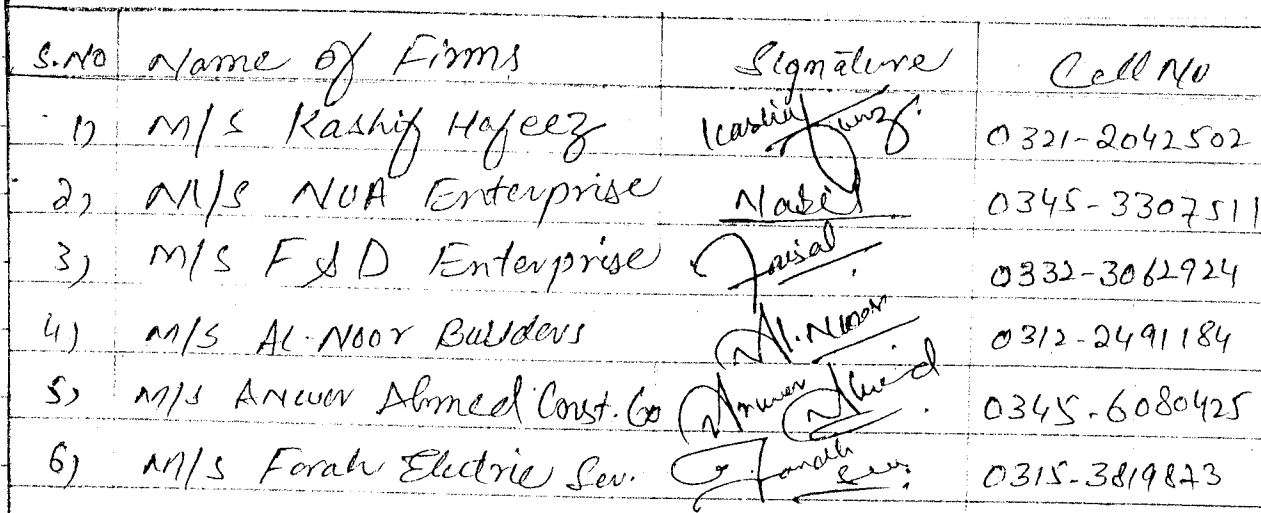 S.No Name of Firms Signature Cell No
1) M/S Kashif Hafeez Kashif 0321-2042502
2) M/S NUA Enterprise Nabil 0345-3307511
3) M/S F&D Enterprise Faisal 0332-3062924
4) M/S Al-Noor Builders Al-Noor 0312-2491184
5) M/S Anwer Ahmed Const. Co Anwer Ahmed 0345-6080425
6) M/S Farah Electric Ser. Farah Ser. 0315-3819823